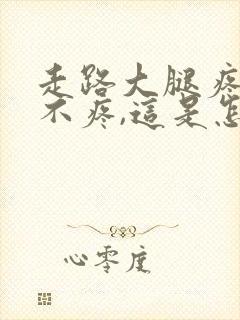 走路大腿疼
不疼,這是怎
心零度